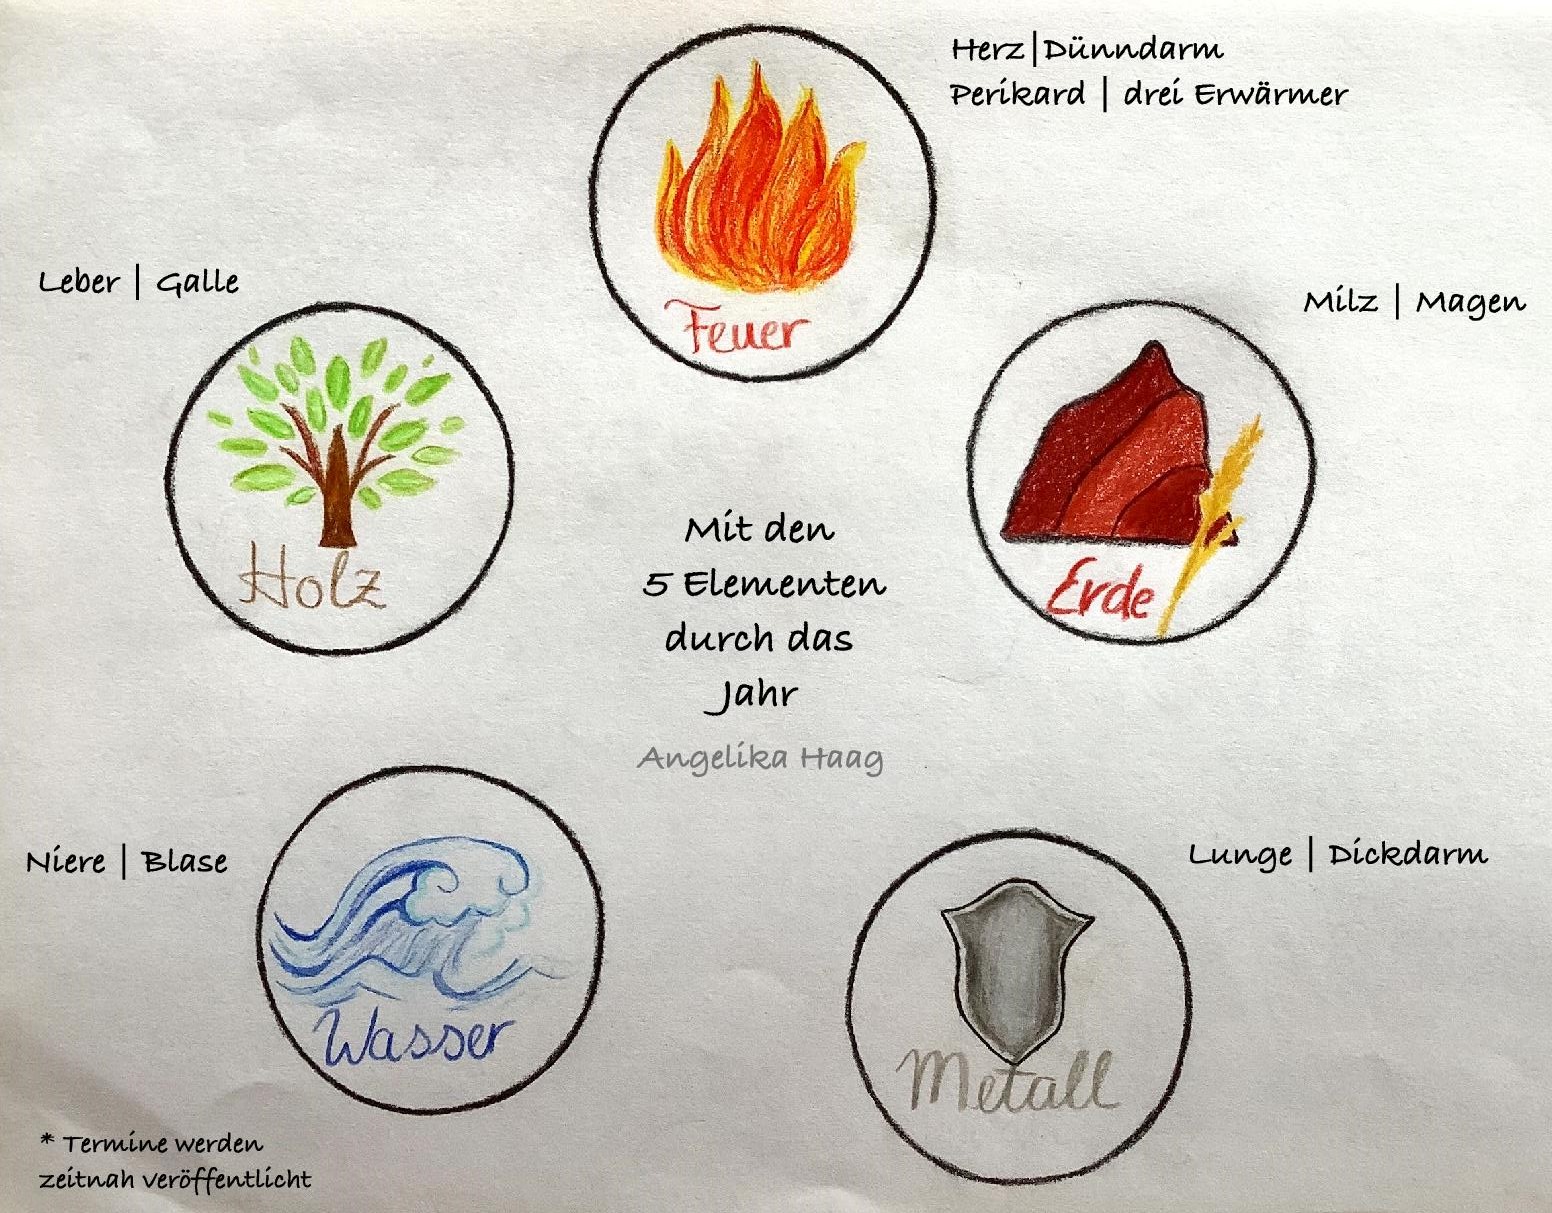 Herz|Dünndarm
Perikard | drei Erwärmer
Feuer
Leber | Galle
Holz
Milz | Magen
Erde
Mit den
5 Elementen
durch das
Jahr
Angelika Haag
Niere | Blase
Wasser
Lunge | Dickdarm
Metall
* Termine werden
zeitnah veröffentlicht